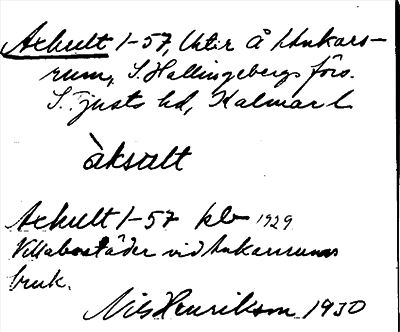 Åckult 1-57, Uter Å i Ankars-
rum, S. Hallingebergs förs.
S. Tjusts hd, Kalmar l
àksult
Åckult 1-57 kb 1929
Villabostäder vid Ankarsrums
bruk.
Nils Henrikson 1930